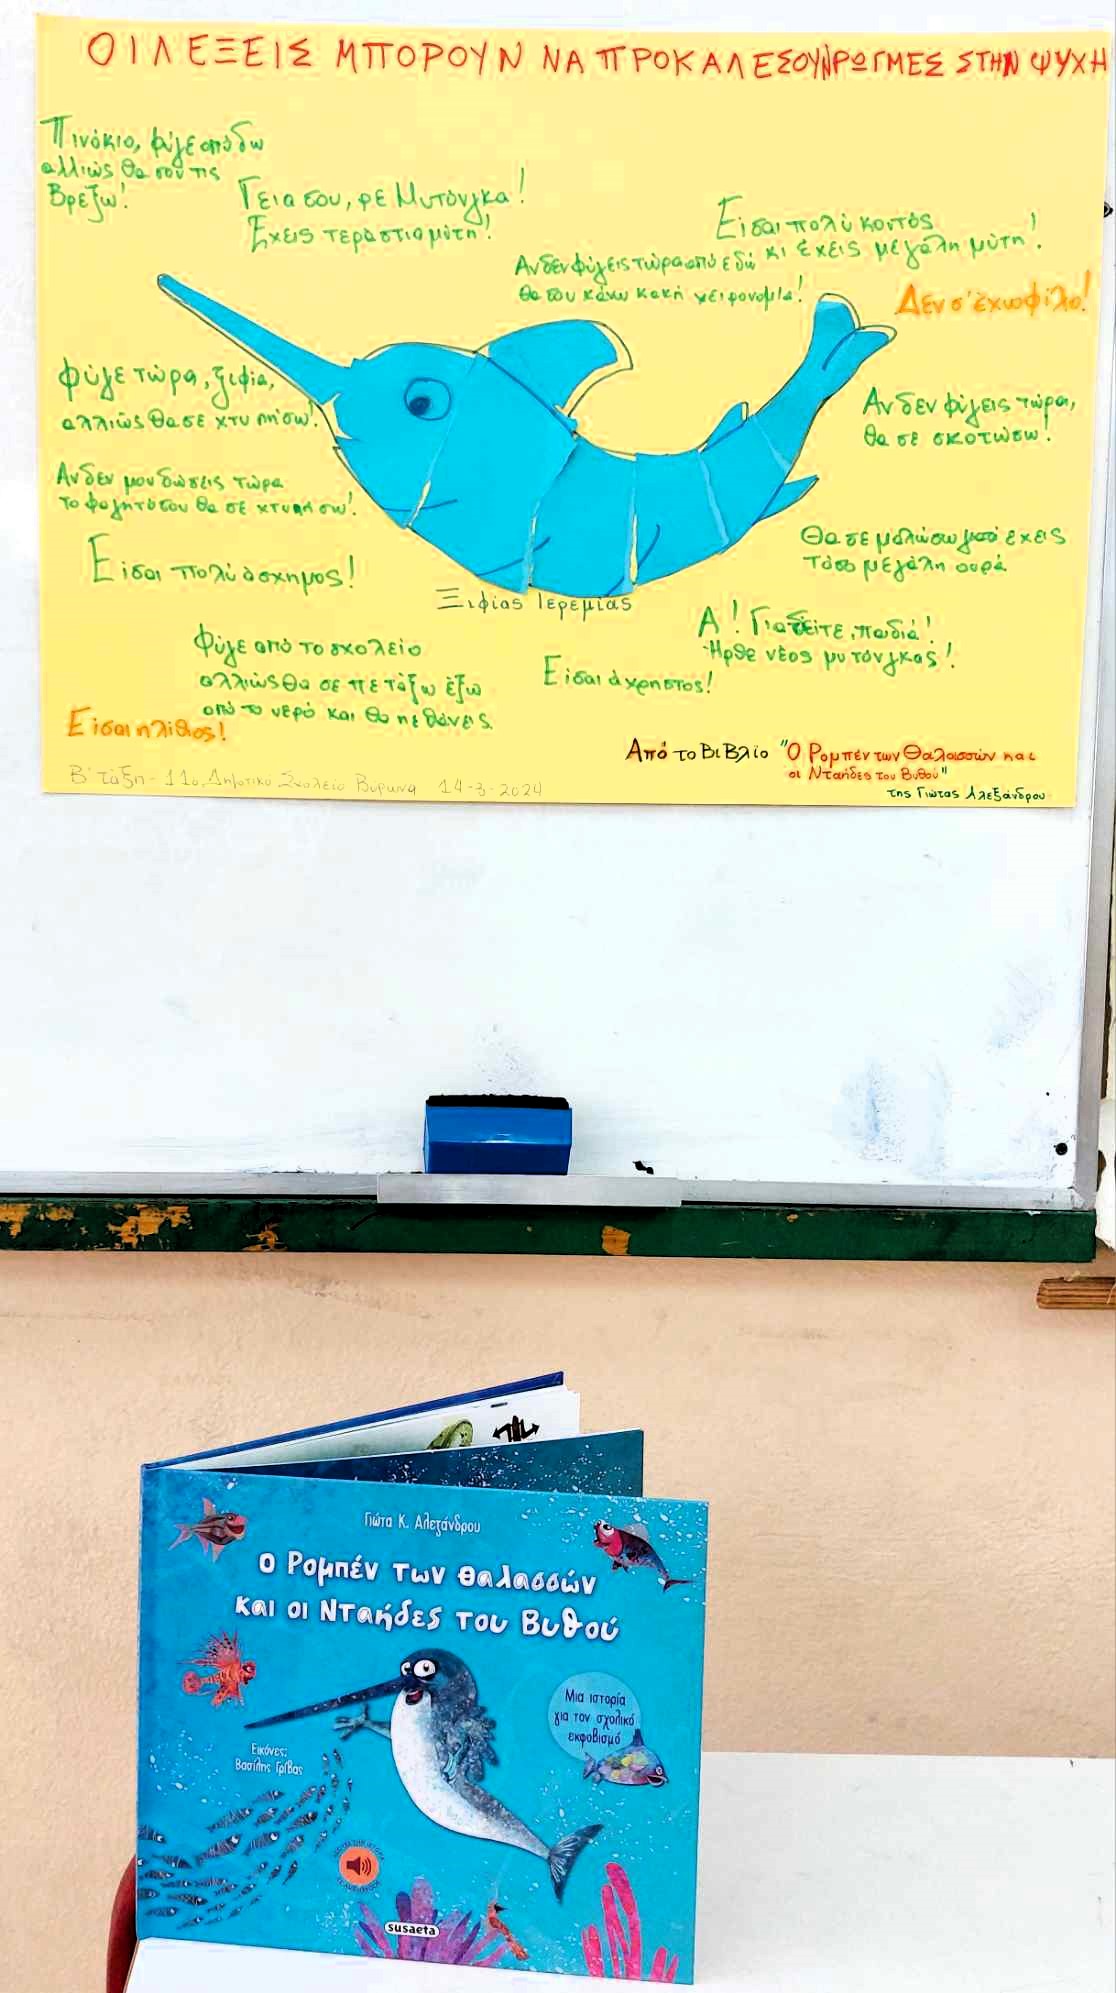 ΟΙ ΛΕΞΕΙΣ ΜΠΟΡΟΥΝ ΝΑ ΠΡΟΚΑΛΕΣΟΥΝ ΡΩΓΜΕΣ ΣΤΗΝ ΨΥΧΗ
Πινόκιο, φύγε από δω
αλλιώς θα σου τις
βρέξω!
Γεια σου, ρε Μυτόνγκα!
Έχεις τεράστια μύτη!
Είσαι πολύ κοντός
κι έχεις μεγάλη μύτη!
Αν δεν φύγεις τώρα από εδώ
θα σου κάνω κακή χειρονομία!
Δεν σ' έχω φίλο!
Φύγε τώρα, ξιφία,
αλλιώς θα σε χτυπήσω!
Αν δεν φύγεις τώρα,
θα σε σκοτώσω!
Αν δεν μου δώσεις τώρα
το φαγητό σου θα σε χτυπήσω!
Θα σε μαλώσω γιατί έχεις
τόσο μεγάλη ουρά
Είσαι πολύ άσχημος!
Ξιφίας Ιερεμίας
Α! Για δείτε, παιδιά!
Ήρθε νέος μυτόνγκας!
Φύγε από το σχολείο
αλλιώς θα σε πετάξω έξω
από το νερό και θα πεθάνεις
Είσαι άχρηστος!
Είσαι ηλίθιος!
Από το Βιβλίο "Ο Ρομπέν των Θαλασσών και
οι Νταήδες του Βυθού"
της Γιώτας Αλεξάνδρου
Β' τάξη - 11ο Δημοτικό Σχολείο Βύρωνα 14-3-2024
Γιώτα Κ. Αλεξάνδρου
Ο Ρομπέν των θαλασσών
και οι Νταήδες του Βυθού
Μια ιστορία
για τον σχολικό
εκφοβισμό
Εικόνες:
Βασίλης Γρίβας
susaeta